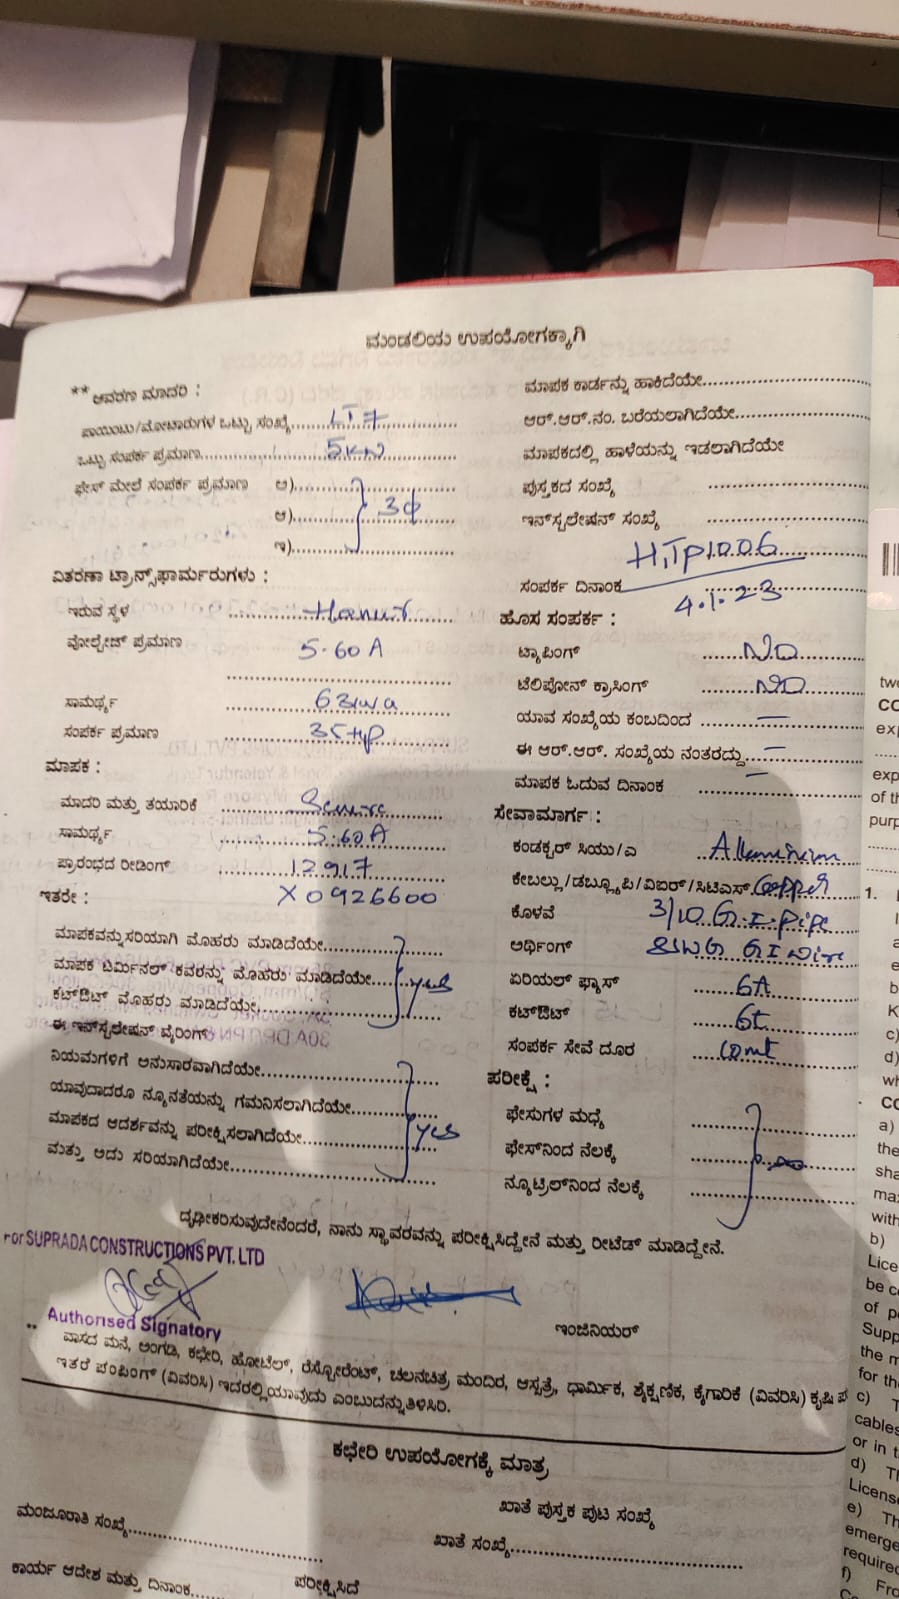 ಮಂಡಲಿಯ ಉಪಯೋಗಕ್ಕಾಗಿ
** ಆವರಣ ಮಾದರಿ :
ಪಾಯಿಂಟು/ಮೋಟಾರುಗಳ ಒಟ್ಟು ಸಂಖ್ಯೆ.....LT7
ಒಟ್ಟು ಸಂಪರ್ಕ ಪ್ರಮಾಣ.....5KW
ಫೇಸ್ ಮೇಲೆ ಸಂಪರ್ಕ ಪ್ರಮಾಣ ಅ).....
ಆ)..... 3ф
ಇ).....
ವಿತರಣಾ ಟ್ರಾನ್ಸ್‌ಫಾರ್ಮರುಗಳು :
ಇರುವ ಸ್ಥಳ .....Hanur
ವೋಲ್ಟೇಜ್ ಪ್ರಮಾಣ 5-60A
ಸಾಮರ್ಥ್ಯ
ಸಂಪರ್ಕ ಪ್ರಮಾಣ
ಮಾಪಕ :
ಮಾದರಿ ಮತ್ತು ತಯಾರಿಕೆ
ಸಾಮರ್ಥ್ಯ .....5-60A
ಪ್ರಾರಂಭದ ರೀಡಿಂಗ್ .....12917
ಇತರೇ : X0926600
ಮಾಪಕವನ್ನುಸರಿಯಾಗಿ ಮೊಹರು ಮಾಡಿದೆಯೇ.....
ಮಾಪಕ ಟರ್ಮಿನಲ್ ಕವರನ್ನು ಮೊಹರು ಮಾಡಿದೆಯೇ..... yes
ಕಟ್‌ಔಟ್ ಮೊಹರು ಮಾಡಿದೆಯೇ.....
ಈ ಇನ್‌ಸ್ಟಲೇಷನ್ ವೈರಿಂಗ್
ನಿಯಮಗಳಿಗೆ ಅನುಸಾರವಾಗಿದೆಯೇ.....
ಯಾವುದಾದರೂ ನ್ಯೂನತೆಯನ್ನು ಗಮನಿಸಲಾಗಿದೆಯೇ.....
ಮಾಪಕದ ಆದರ್ಶವನ್ನು ಪರೀಕ್ಷಿಸಲಾಗಿದೆಯೇ..... yes
ಮತ್ತು ಅದು ಸರಿಯಾಗಿದೆಯೇ.....
ಮಾಪಕ ಕಾರ್ಡನ್ನು ಹಾಕಿದೆಯೇ.....
ಆರ್.ಆರ್.ನಂ. ಬರೆಯಲಾಗಿದೆಯೇ.....
ಮಾಪಕದಲ್ಲಿ ಹಾಳೆಯನ್ನು ಇಡಲಾಗಿದೆಯೇ
ಪುಸ್ತಕದ ಸಂಖ್ಯೆ .....
ಇನ್‌ಸ್ಟಲೇಷನ್ ಸಂಖ್ಯೆ .....
HTP1006
ಸಂಪರ್ಕ ದಿನಾಂಕ 4.1.23
ಹೊಸ ಸಂಪರ್ಕ :
ಟ್ಯಾಪಿಂಗ್ .....NO
ಟೆಲಿಪೋನ್ ಕ್ರಾಸಿಂಗ್ .....NO
ಯಾವ ಸಂಖ್ಯೆಯ ಕಂಬದಿಂದ ..... —
ಈ ಆರ್.ಆರ್. ಸಂಖ್ಯೆಯ ನಂತರದ್ದು..... —
ಮಾಪಕ ಓದುವ ದಿನಾಂಕ ..... —
ಸೇವಾಮಾರ್ಗ :
ಕಂಡಕ್ಟರ್ ಸಿಯು/ಎ
ಕೇಬಲ್ಲು/ಡಬ್ಲ್ಯೂಪಿ/ವಿಐರ್/ಸಿಟಿಎಸ್ Copper
ಕೊಳವೆ 3/10 G.I-pipe
ಅರ್ಥಿಂಗ್ 8SWG GI wire
ಏರಿಯಲ್ ಫ್ಯೂಸ್ .....6A
ಕಟ್‌ಔಟ್
ಸಂಪರ್ಕ ಸೇವೆ ದೂರ .....10mt
ಪರೀಕ್ಷೆ :
ಫೇಸುಗಳ ಮಧ್ಯೆ .....
ಫೇಸ್‌ನಿಂದ ನೆಲಕ್ಕೆ .....
ನ್ಯೂಟ್ರಿಲ್‌ನಿಂದ ನೆಲಕ್ಕೆ .....
ದೃಢೀಕರಿಸುವುದೇನೆಂದರೆ, ನಾನು ಸ್ಥಾವರವನ್ನು ಪರೀಕ್ಷಿಸಿದ್ದೇನೆ ಮತ್ತು ರೀಟೆಡ್ ಮಾಡಿದ್ದೇನೆ.
For SUPRADA CONSTRUCTIONS PVT. LTD
Authorised Signatory
ಇಂಜಿನಿಯರ್
** ವಾಸದ ಮನೆ, ಅಂಗಡಿ, ಕಛೇರಿ, ಹೋಟೆಲ್, ರೆಸ್ಟೋರೆಂಟ್, ಚಲನಚಿತ್ರ ಮಂದಿರ, ಆಸ್ಪತ್ರೆ, ಧಾರ್ಮಿಕ, ಶೈಕ್ಷಣಿಕ, ಕೈಗಾರಿಕೆ (ವಿವರಿಸಿ) ಕೃಷಿ ಪ
ಇತರೆ ಪಂಪಿಂಗ್ (ವಿವರಿಸಿ) ಇದರಲ್ಲಿ ಯಾವುದು ಎಂಬುದನ್ನು ತಿಳಿಸಿರಿ.
ಕಛೇರಿ ಉಪಯೋಗಕ್ಕೆ ಮಾತ್ರ
ಮಂಜೂರಾತಿ ಸಂಖ್ಯೆ.....
ಖಾತೆ ಪುಸ್ತಕ ಪುಟ ಸಂಖ್ಯೆ
ಖಾತೆ ಸಂಖ್ಯೆ.....
ಕಾರ್ಯ ಆದೇಶ ಮತ್ತು ದಿನಾಂಕ.....
ಪರೀಕ್ಷಿಸಿದೆ